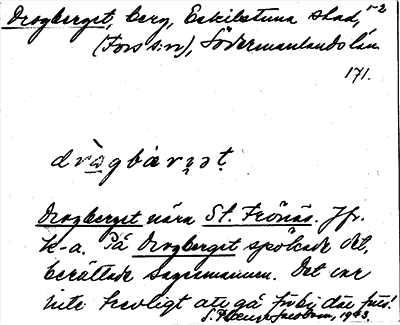 Drogberget, berg, Eskilstuna stad, 1-2
(Fors s:n), Södermanlands län
171.
drògbærʒət
Drogberget nära St. Trönäs. Jfr.
K-a. På Drogberget spökade det,
berättade sagesmannen. Det var
inte trevligt att gå förbi där förr!
1943.